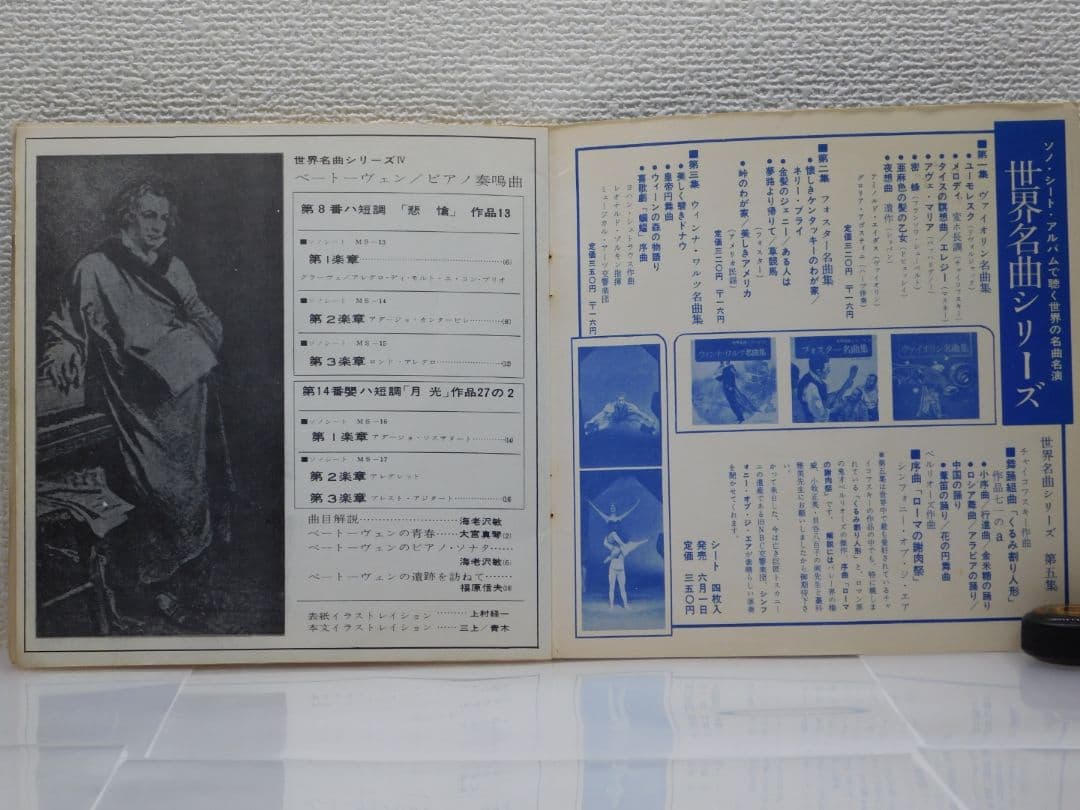 世界名曲シリーズⅣ
ベートーヴェン/ピアノ奏鳴曲
第8番ハ短調 「悲 愴」 作品13
■ソノシート MS-13
第1楽章………(6)
グラーヴェ/アレグロ・ディ・モルト・エ・コン・ブリオ
■ソノシート MS-14
第2楽章 アダージョ・カンタービレ………(8)
■ソノシート MS-15
第3楽章 ロンド・アレグロ………(12)
第14番嬰ハ短調「月 光」作品27の2
■ソノシート MS-16
第1楽章 アダージョ・ソステヌート………(14)
■ソノシート MS-17
第2楽章 アレグレット
第3楽章 プレスト・アジタート………(18)
曲目解説………海老沢敏
ベートーヴェンの青春……大宮真琴(2)
ベートーヴェンのピアノ・ソナタ……
海老沢敏(6)
ベートーヴェンの遺跡を訪ねて……
福原信夫
表紙イラストレイション………上村経一
本文イラストレイション……三上/青木
ソノ・シート・アルバムで聴く世界の名曲名演
世界名曲シリーズ
■第一集 ヴァイオリン名曲集
●ユーモレスク(ドヴォルジャック)
●メロディ 変ホ長調(チャイコフスキー)
●タイスの瞑想曲/エレジー(マスネー)
●アヴェ・マリア(バッハ=グノー)
●密蜂(フランソワ・シューベルト)
●亜麻色の髪の乙女(ドビュッシイ)
●夜想曲 遺作(ショパン)
アーノルド・エイダス(ヴァイオリン)
グロリア・アゴスティニ(ハープ伴奏)
定価三二〇円 〒一六円
■第二集 フォスター名曲集
●懐しきケンタッキーのわが家/
ネリー・ブライ
●金髪のジェニー/ある人は
●夢路より帰りて/草競馬
(フォスター)
●峠のわが家/美しきアメリカ
(アメリカ民謡)
定価三五〇円 〒一六円
■第三集 ウィンナ・ワルツ名曲集
●美しく碧きドナウ
●皇帝円舞曲
●ウィーンの森の物語り
●喜歌劇「蝙蝠」序曲
ヨハン・シュトラウス作曲
レオナルド・ソルキン指揮
ミュージカル・アーツ交響楽団
定価三五〇円 〒一六円
ウィンナ・ワルツ名曲集
フォスター名曲集
ヴァイオリン名曲集
世界名曲シリーズ 第五集
チャイコフスキー作曲
■舞踊組曲「くるみ割り人形」
作品七一のa
●小序曲/行進曲/金米糖の踊り
●ロシア舞曲/アラビアの踊り/
中国の踊り
●葦笛の踊り/花の円舞曲
ベルリオーズ作曲
■序曲「ローマの謝肉祭」
シンフォニー・オブ・ジ・エア
●第五集は世界中で最も愛好されているチャ
イコフスキーの作品の中でも、特に親しま
れている「くるみ割り人形」と、ロマン派
の鬼才ベルリオーズの傑作、序曲「ローマ
の謝肉祭」です。解説にはバレー界の権
威、小牧正英、貝谷八百子の両先生と藁科
雅美先生にお願いしましたから御期待下さ
い。
かつて来日した、今は亡き巨匠トスカニー
ニの遺産である旧NBC交響楽団、シンフ
ォニー・オブ・ジ・エアが素晴らしい演奏
を聞かせてくれます。
シート 四枚入
発売 六月一日
定価 三五〇円